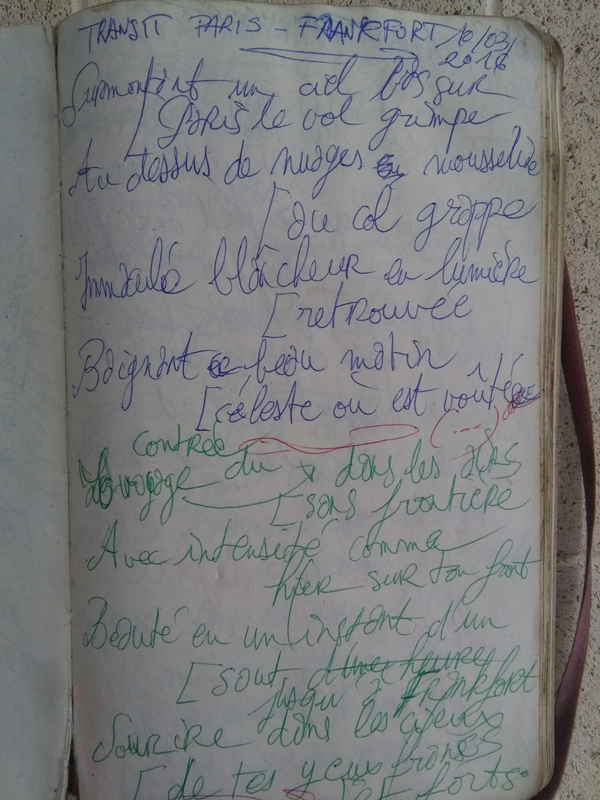 TRANSIT PARIS - FRANKFORT 10/03/
2016
Surmontant un ciel bas sur
[ PARIS le vol grimpe
Au dessus de nuages mousseline
[ au col grappe
Immaculée blancheur en lumière
[ retrouvée
Baignant ce beau matin
[ céleste où est voûtée
(---)
contrée
voyage du dans les
[ sans frontière
Avec intensité comme
hier sur ton front
Beauté en un instant d'un
[ saut d'une heure
jusqu'à FRANKFORT
Sourire dans les cieux
[ de tes yeux et forts